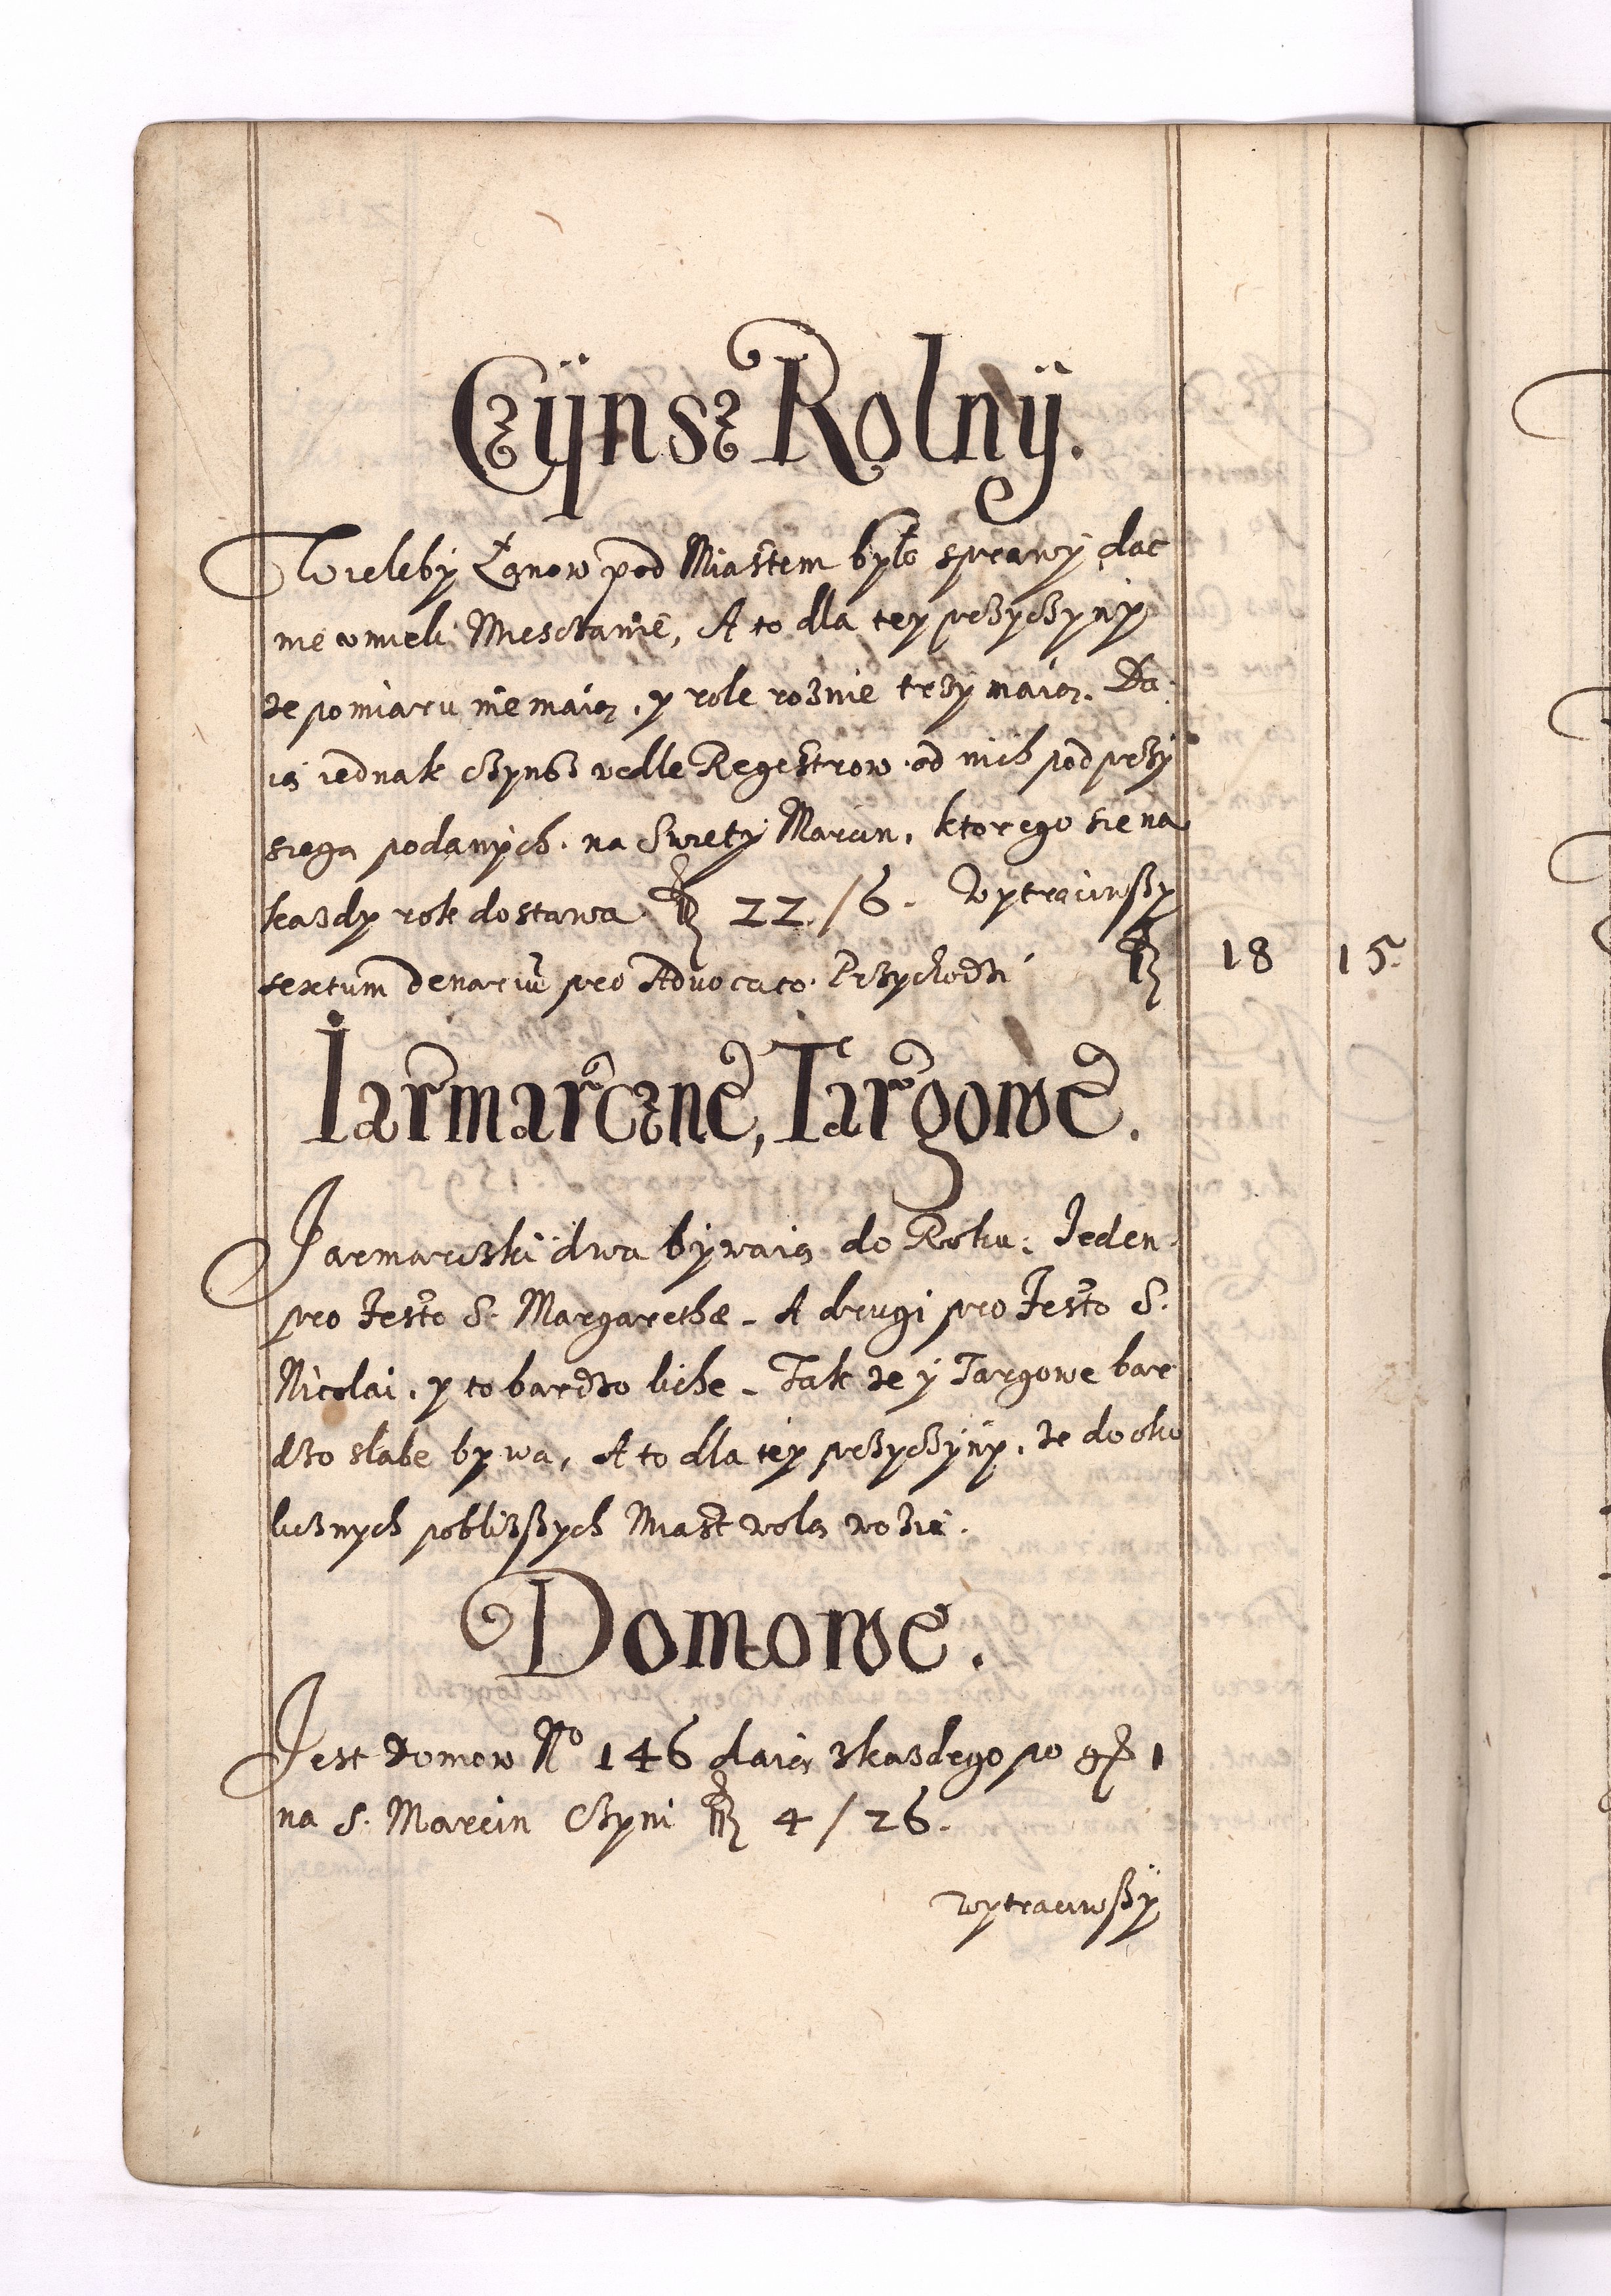 Czÿnsz Rolnÿ.
Wieleby Łanow pod Miastem było sprawy dac
nie umieli Miesczanie, A to dla tey przyczyny
ze pomiaru nie maią, y role roznie trzy maią. Da,
ią iednak czynsz vedle Regestrow od nich pod przy
siegą podanych. na Swiety Marcin, ktorego sie na
kazdy rok dostawa 22 / 6. Wytraciwszy
sextum denariũ pro Advocato. Przychodzi 18 15.
Iarmarczne, Targowe.
Jarmarczki dwa bywaią do Roku: Jeden
pro Festo S. Margarethæ - A drugi pro Festo S.
Nicolai, y to bardzo liche - Tak ze y Targowe bar
dzo słabe bywa, A to dla tey przyczyny, ze do oko
licznych poblizszych Miast wolą wozic.
Domowe.
Jest Domow No 146 daią zkazdego po g 1
na S. Marcin Czyni 4 / 26.
wytraciwszÿ